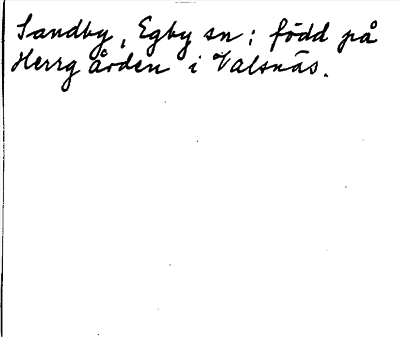 Sandby, Egby sn; född på
Herrgården i Valsnäs.